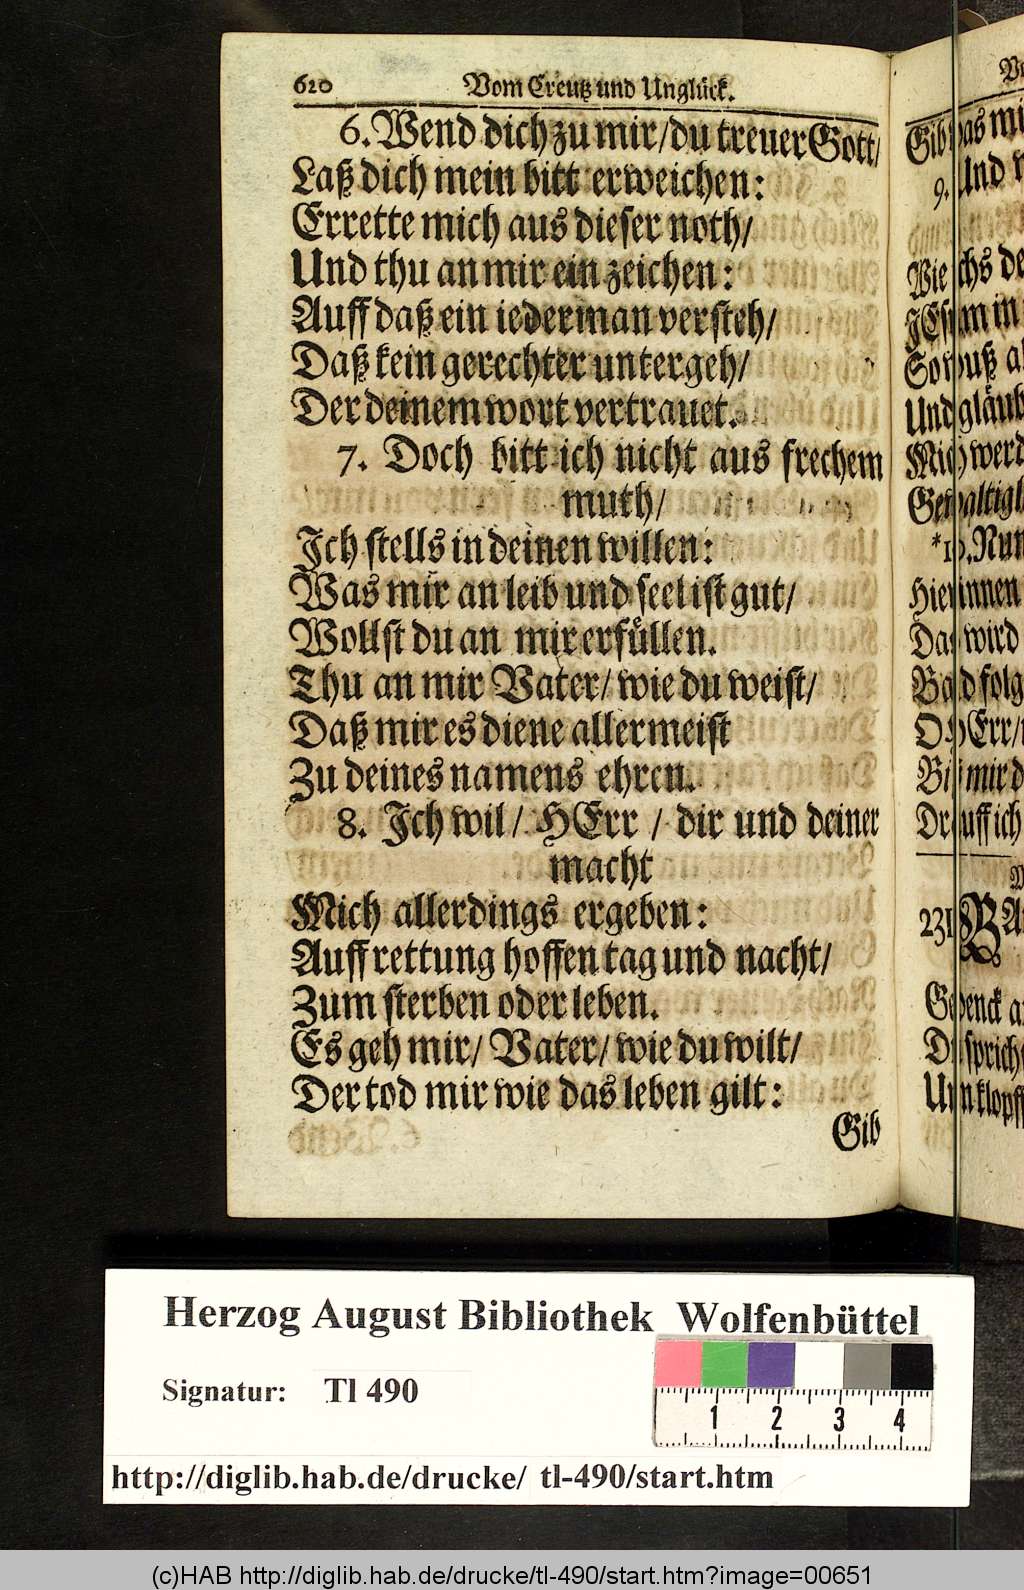 620 Vom Creutz und Unglück.
6. Wend dich zu mir/ du treuer Gott/
Laß dich mein bitt erweichen:
Errette mich aus dieser noth/
Und thu an mir ein zeichen:
Auff daß ein iederman versteh/
Daß kein gerechter untergeh/
Der deinem wort vertrauet.
7. Doch bitt ich nicht aus frechem
muth/
Ich stells in deinen willen:
Was mir an leib und seel ist gut/
Wollst du an mir erfüllen.
Thu an mir Vater/ wie du weist/
Daß mir es diene allermeist
Zu deines namens ehren.
8. Ich wil/ HErr/ dir und deiner
macht
Mich allerdings ergeben:
Auff rettung hoffen tag und nacht/
Zum sterben oder leben.
Es geh mir/ Vater/ wie du wilt/
Der tod mir wie das leben gilt:
Gib
9. Und
Wie ichs
So muß
Und gläub
Mich werd
*10. Nun
Hierinnen
Das wird
Bald folg
O HErr/
Bis mir
Drauff ich
231
Gedenck
Du sprich
Und klopff
Herzog August Bibliothek Wolfenbüttel
Signatur: Tl 490
1 2 3 4
http://diglib.hab.de/drucke/ tl-490/start.htm
(c)HAB http://diglib.hab.de/drucke/tl-490/start.htm?image=00651